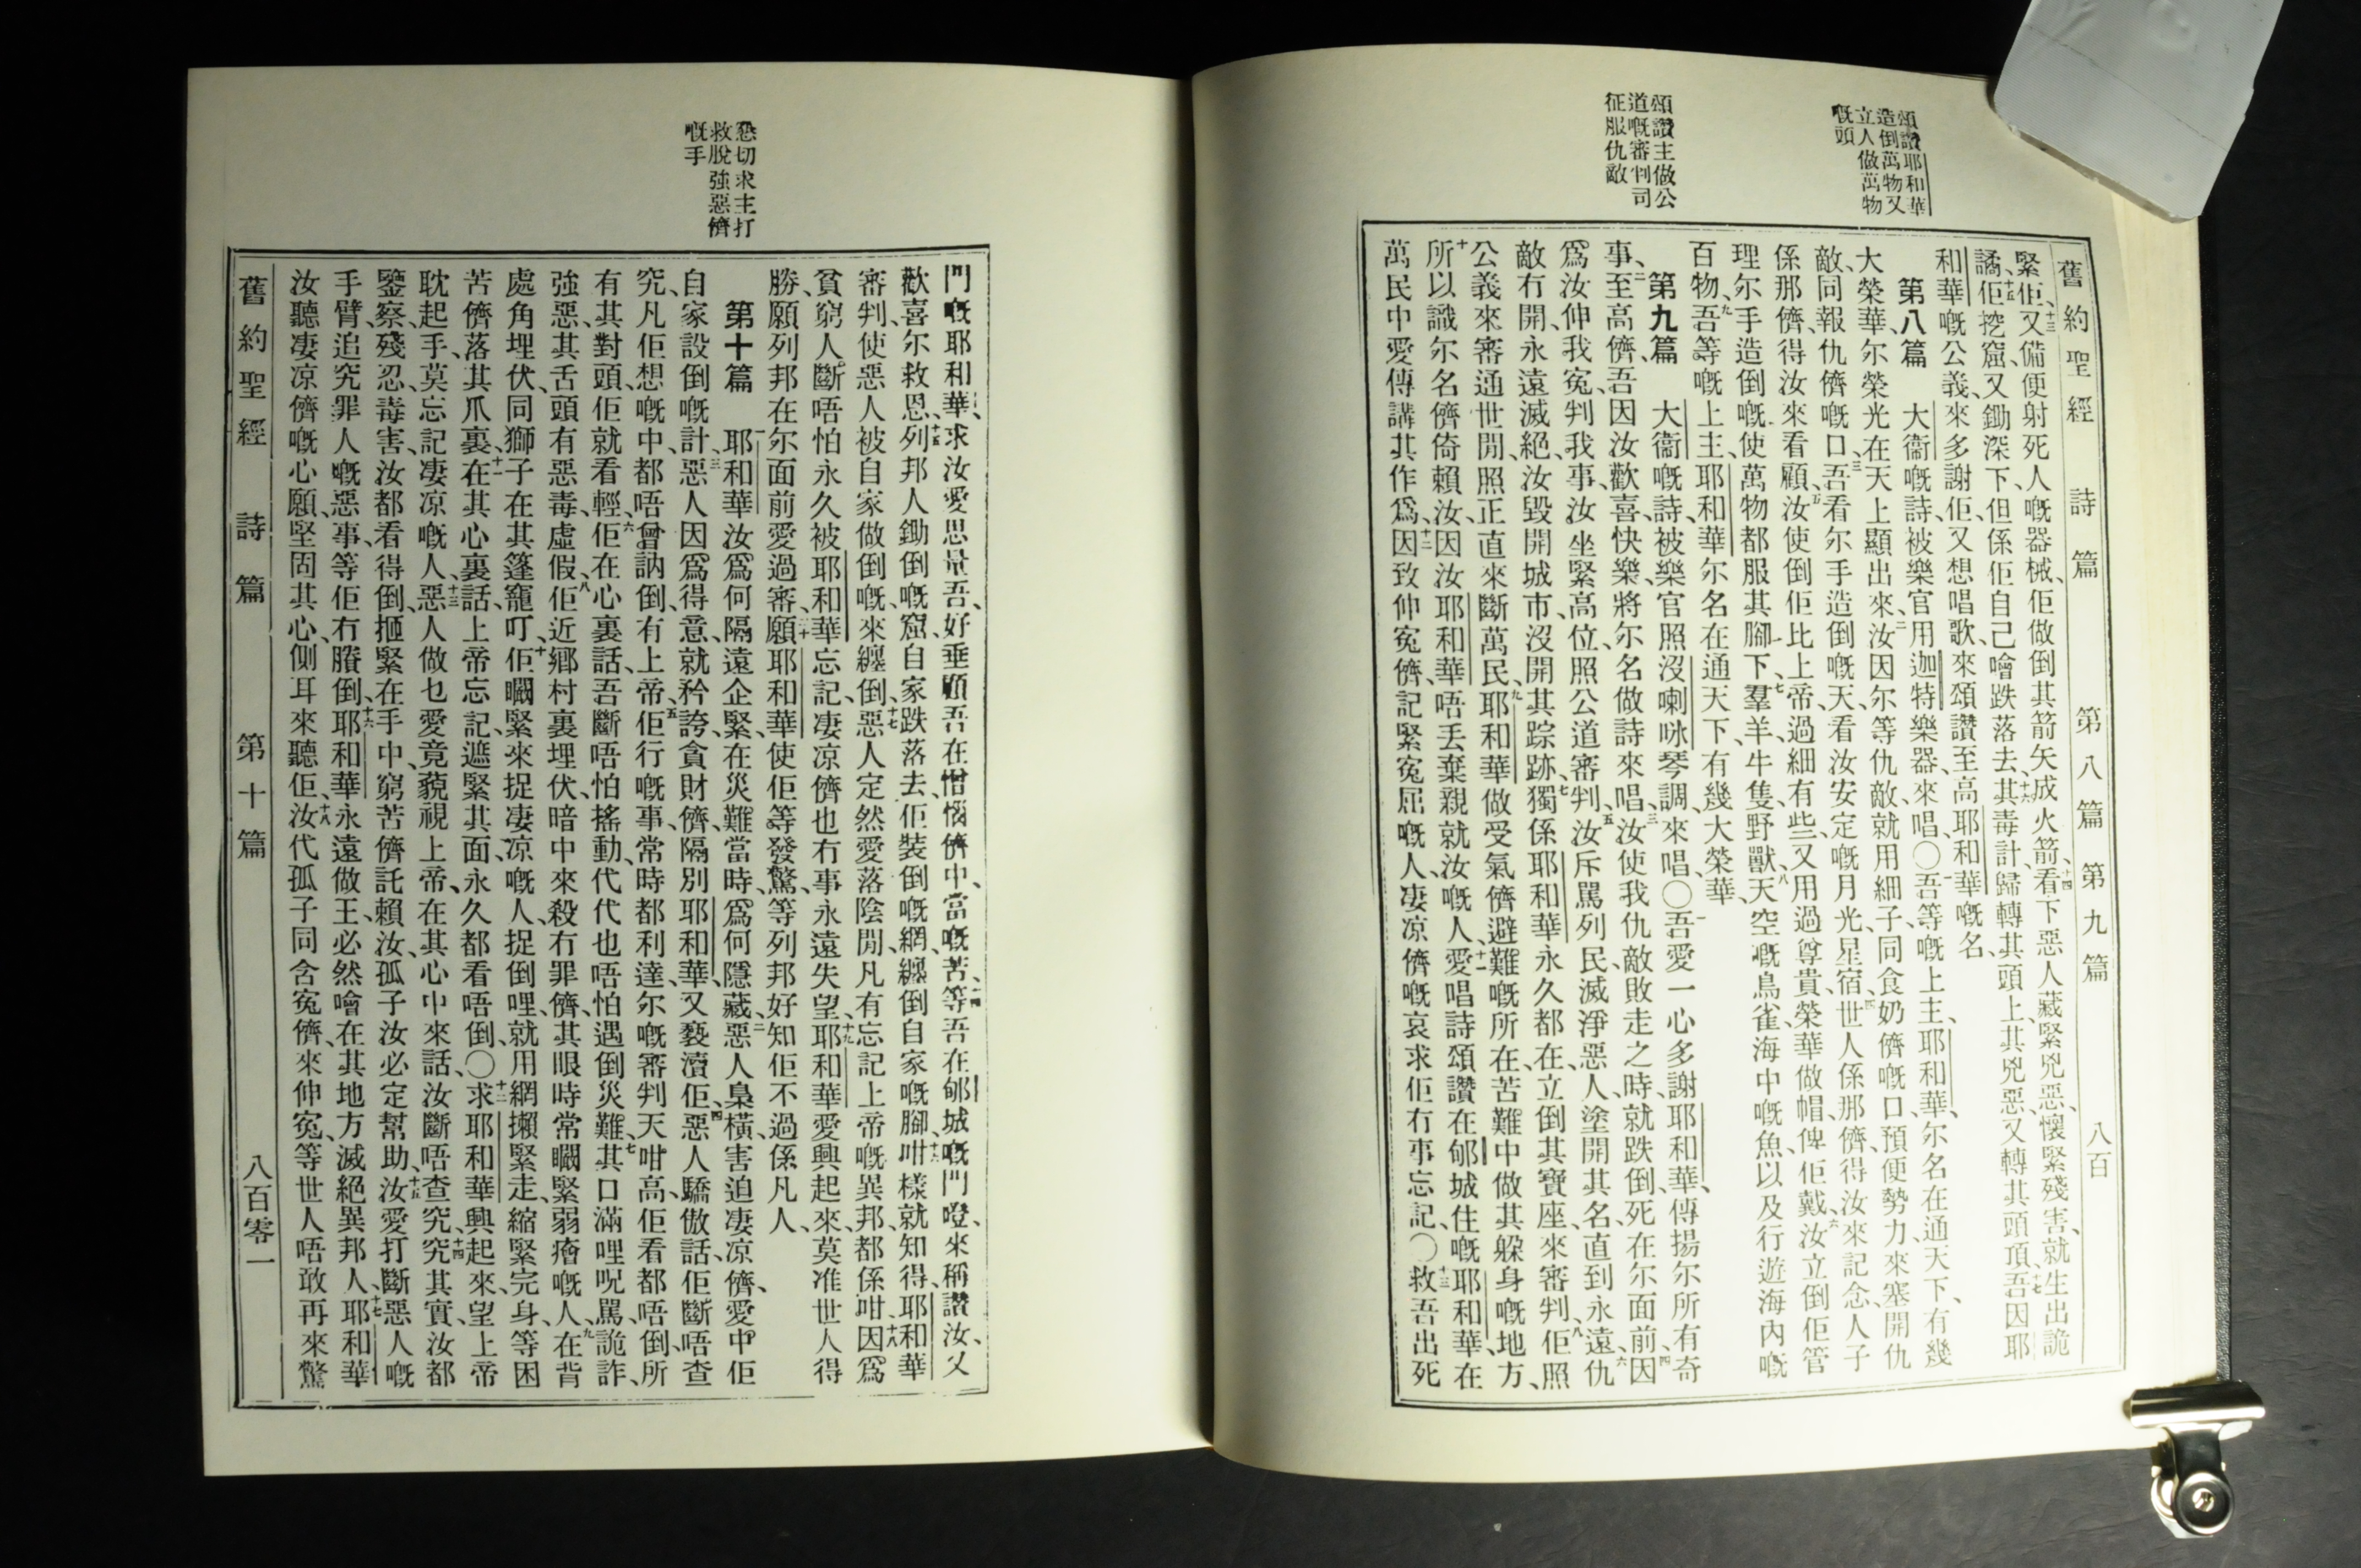 舊約聖經 詩篇 第八篇 第九篇 八百
頌讚耶和華
造倒萬物又
立人做萬物
嘅頭
頌讚主做公
道嘅審判司
征服仇敵
緊佢、十三又備便射死人嘅器械、佢做倒其箭矢成火箭、十四看下惡人藏緊兇惡、懷緊殘害、就生出詭
譎、十五佢挖窟、又鋤深下、但係佢自己噲跌落去、十六其毒計歸轉其頭上、其兇惡又轉其頭頂、十七吾因耶
和華嘅公義、來多謝佢、又想唱歌、來頌讚至高耶和華嘅名、
第八篇 大衞嘅詩、被樂官用迦特樂器、來唱、〇一吾等嘅上主、耶和華、尔名在通天下、有幾
大榮華、尔榮光在天上顯出來、二汝因尔等仇敵、就用細子、同食奶儕嘅口、預便勢力、來塞開仇
敵、同報仇儕嘅口、三吾看尔手造倒嘅天、看汝安定嘅月光、星宿、四世人係那儕、得汝來記念、人子
係那儕、得汝來看顧、五汝使倒佢比上帝、過細有些、又用過尊貴、榮華做帽、俾佢戴、六汝立倒佢管
理尔手造倒嘅、使萬物都服其腳下、七羣羊、牛隻、野獸、八天空嘅鳥雀、海中嘅魚、以及行遊海內嘅
百物、九吾等嘅上主、耶和華、尔名在通天下、有幾大榮華、
第九篇 大衞嘅詩、被樂官照沒喇咏琴調、來唱、〇一吾愛一心多謝耶和華、傳揚尔所有奇
事、二至高儕、吾因汝歡喜、快樂、將尔名做詩來唱、三汝使我仇敵敗走之時、就跌倒、死在尔面前、四因
爲汝伸我寃、判我事、汝坐緊高位、照公道審判、五汝斥罵列民、滅淨惡人、塗開其名、直到永遠、六仇
敵冇開、永遠滅絕、汝毀開城市、沒開其踪跡、七獨係耶和華永久都在、立倒其寶座、來審判、八佢照
公義來審通世間、照正直來斷萬民、九耶和華做受氣儕避難嘅所在、苦難中做其躲身嘅地方、
十所以識尔名儕倚賴汝、因汝耶和華、唔丢棄親就汝嘅人、十一愛唱詩頌讚在郇城住嘅耶和華、在
萬民中愛傳講其作爲、十二因致伸寃儕、記緊寃屈嘅人、凄凉儕嘅哀求、佢冇事忘記、〇十三救吾出死
懇切求主打
救脫強惡儕
嘅手
門嘅耶和華、求汝愛思量吾、好垂顧吾在憎惱儕中、當嘅苦、十四等吾在郇城嘅門𡃁、來稱讚汝、又
歡喜尔救恩、十五列邦人鋤倒嘅窟、自家跌落去、佢裝倒嘅網、纏倒自家嘅腳、十六咁樣就知得、耶和華
審判、使惡人被自家做倒嘅、來纏倒、十七惡人定然愛落陰間、凡有忘記上帝嘅異邦、都係咁、十八因爲
貧窮人、斷唔怕永久被耶和華忘記、凄凉儕也冇事永遠失望、十九耶和華愛興起來、莫准世人得
勝、願列邦在尔面前愛過審、二十願耶和華、使佢等發驚、等列邦好知佢不過係凡人、
第十篇 一耶和華汝爲何隔遠企緊、在災難當時、爲何隱藏、二惡人梟橫、害迫凄凉儕、愛中佢
自家設倒嘅計、三惡人因爲得意、就矜誇、貪財儕、隔別耶和華、又褻瀆佢、四惡人驕傲話、佢斷唔查
究、凡佢想嘅中、都唔曾訥倒有上帝、五佢行嘅事、常時都利達、尔嘅審判天咁高、佢看都唔倒、所
有其對頭、佢就看輕、六佢在心裏話、吾斷唔怕搖動、代代也唔怕遇倒災難、七其口滿哩呪罵、詭詐、
強惡、其舌頭有惡毒、虛假、八佢近鄉村裏埋伏、暗中來殺冇罪儕、其眼時常矋緊弱瘡嘅人、九在背
處角埋伏、同獅子在其蓬竉叮、十佢矋緊來捉凄凉嘅人、捉倒哩、就用網攋緊走、縮緊完身、等困
苦儕落其爪裏、十一在其心裏話、上帝忘記、遮緊其面、永久都看唔倒、〇十二求耶和華興起來、望上帝
耽起手、莫忘記凄凉嘅人、十三惡人做乜愛竟藐視上帝、在其心中來話、汝斷唔查究、十四究其實、汝都
鑒察、殘忍、毒害、汝都看得倒、揯緊在手中、窮苦儕託賴汝、孤子汝必定幫助、十五汝愛打斷惡人嘅
手臂、追究罪人嘅惡事、等佢冇賸倒、十六耶和華永遠做王、必然噲在其地方滅絕異邦人、十七耶和華
汝聽凄凉儕嘅心願、堅固其心、側耳來聽佢、十八汝代孤子同含寃儕、來伸寃、等世人唔敢再來驚
舊約聖經 詩篇 第十篇 八百零一